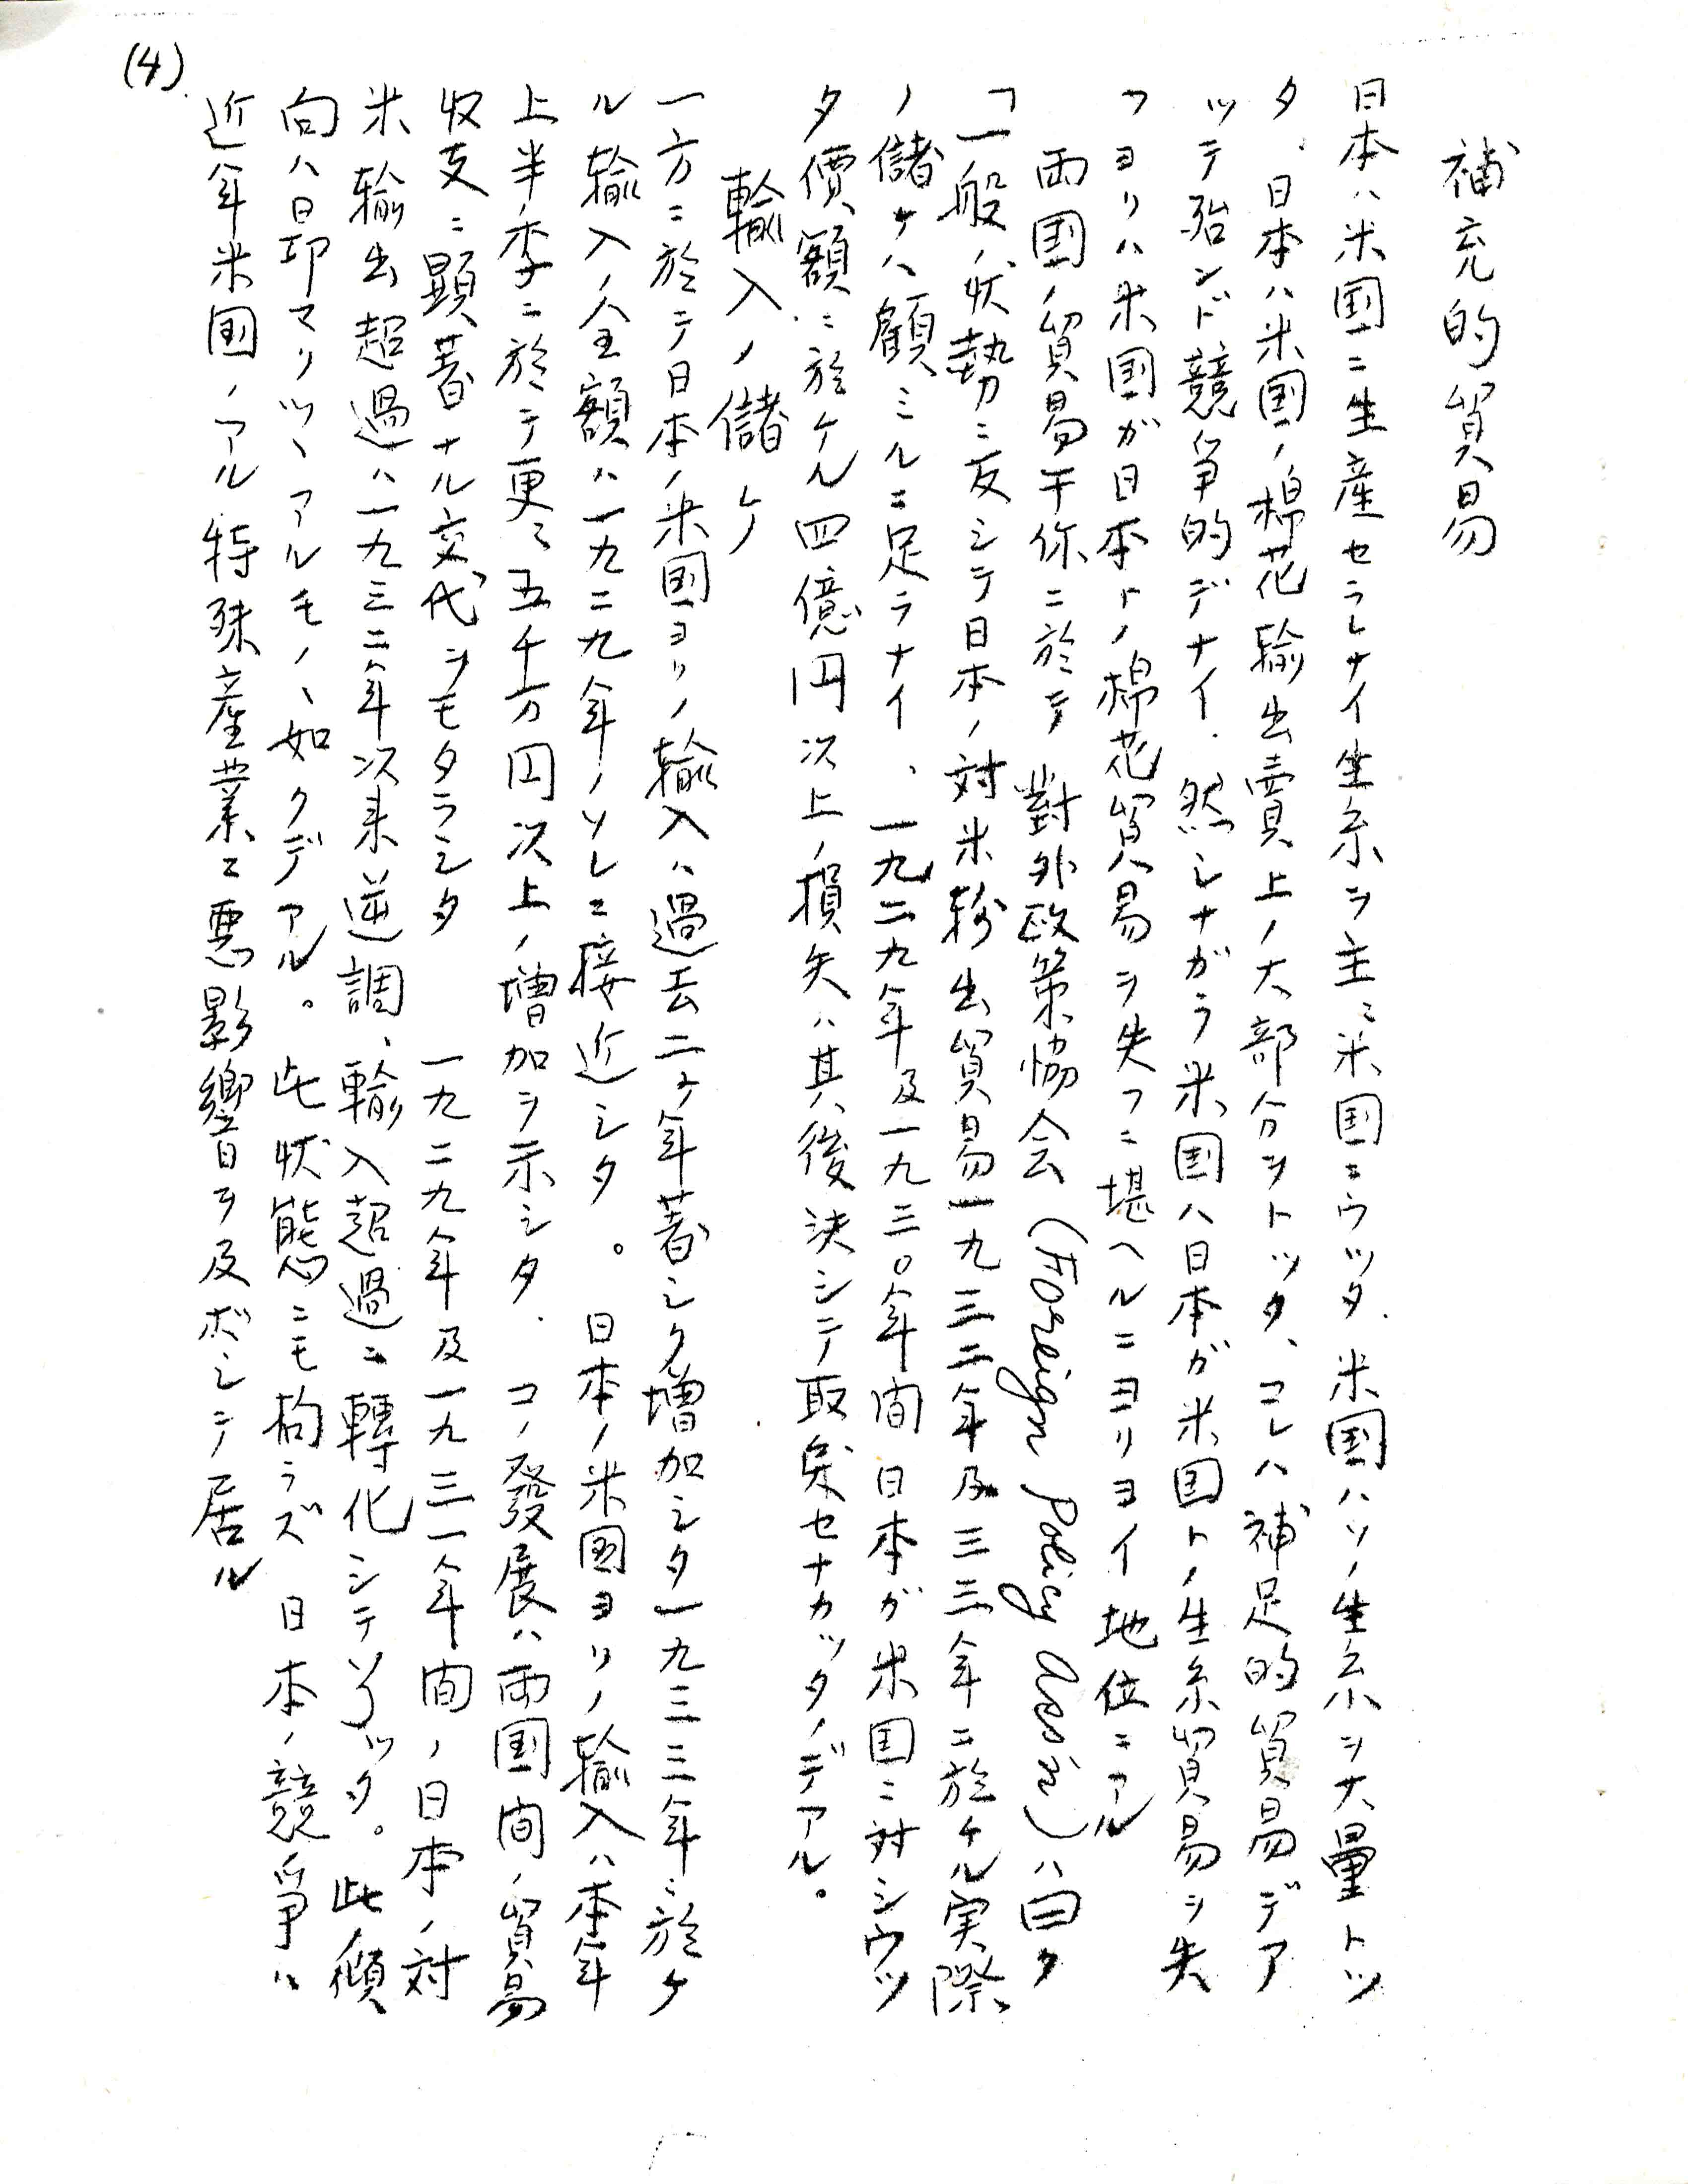 補充的貿易
日本ハ米国ニ生産セラレナイ生糸ヲ主ニ米国ニウッタ.米国ハソノ生糸ヲ大量トッ
タ.日本ハ米国ノ棉花輸出賣上ノ大部分ヲトッタ、コレハ補足的貿易デア
ッテ殆ンド競争的デナイ.然シナガラ米国ハ日本ガ米国トノ生糸貿易ヲ失
フヨリハ米国ガ日本トノ棉花貿易ヲ失フニ堪ヘルニヨリヨイ地位ニアル
両国ノ貿易干係ニ於テ對外政策協会(Foreign Policy Ass'n)ハ曰ク
「一般ノ状勢ニ反シテ日本ノ対米輸出貿易一九三二年及三三年ニ於ケル実際
ノ儲ケハ顧ミルニ足ラナイ、一九二九年及一九三〇年間日本ガ米国ニ対シウッ
タ價額ニ於ケル四億円以上ノ損失ハ其後決シテ取戻セナカッタノデアル。
輸入ノ儲ケ
一方ニ於テ日本ノ米国ヨリノ輸入ハ過去二ヶ年著シク増加シタ一九三三年ニ於ケ
ル輸入ノ全額ハ一九二九年ノソレニ接近シタ。日本ノ米国ヨリノ輸入ハ本年
上半季ニ於テ更ニ五千万円以上ノ増加ヲ示シタ.コノ發展ハ両国間ノ貿易
収支ニ顕著ナル交代ヲモタラシタ 一九二九年及一九三一年間ノ日本ノ対
米輸出超過ハ一九三二年以来逆調、輸入超過ニ轉化シテ了ッタ。此傾
向ハ日卬マリツヽアルモノヽ如クデアル。此状態ニモ拘ラズ 日本ノ競爭ハ
近年米国ノアル特殊産業ニ悪影響ヲ及ボシテ居ル
(4)